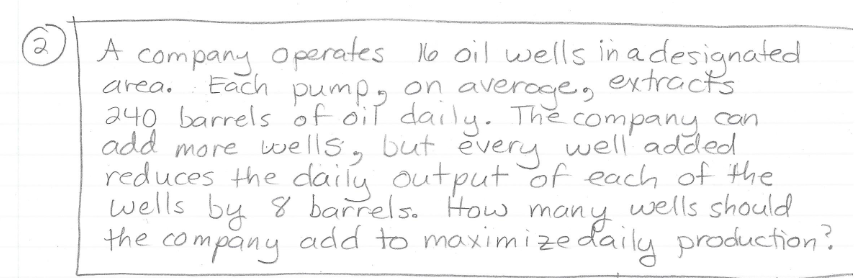 2
A company operates 16 oil wells in a designated
area. Each pump, on average, extracts
240 barrels of oil daily. The company can
add more wells, but every well added
reduces the daily output of each of the
wells by 8 barrels. How many wells should
the company add to maximize daily production?